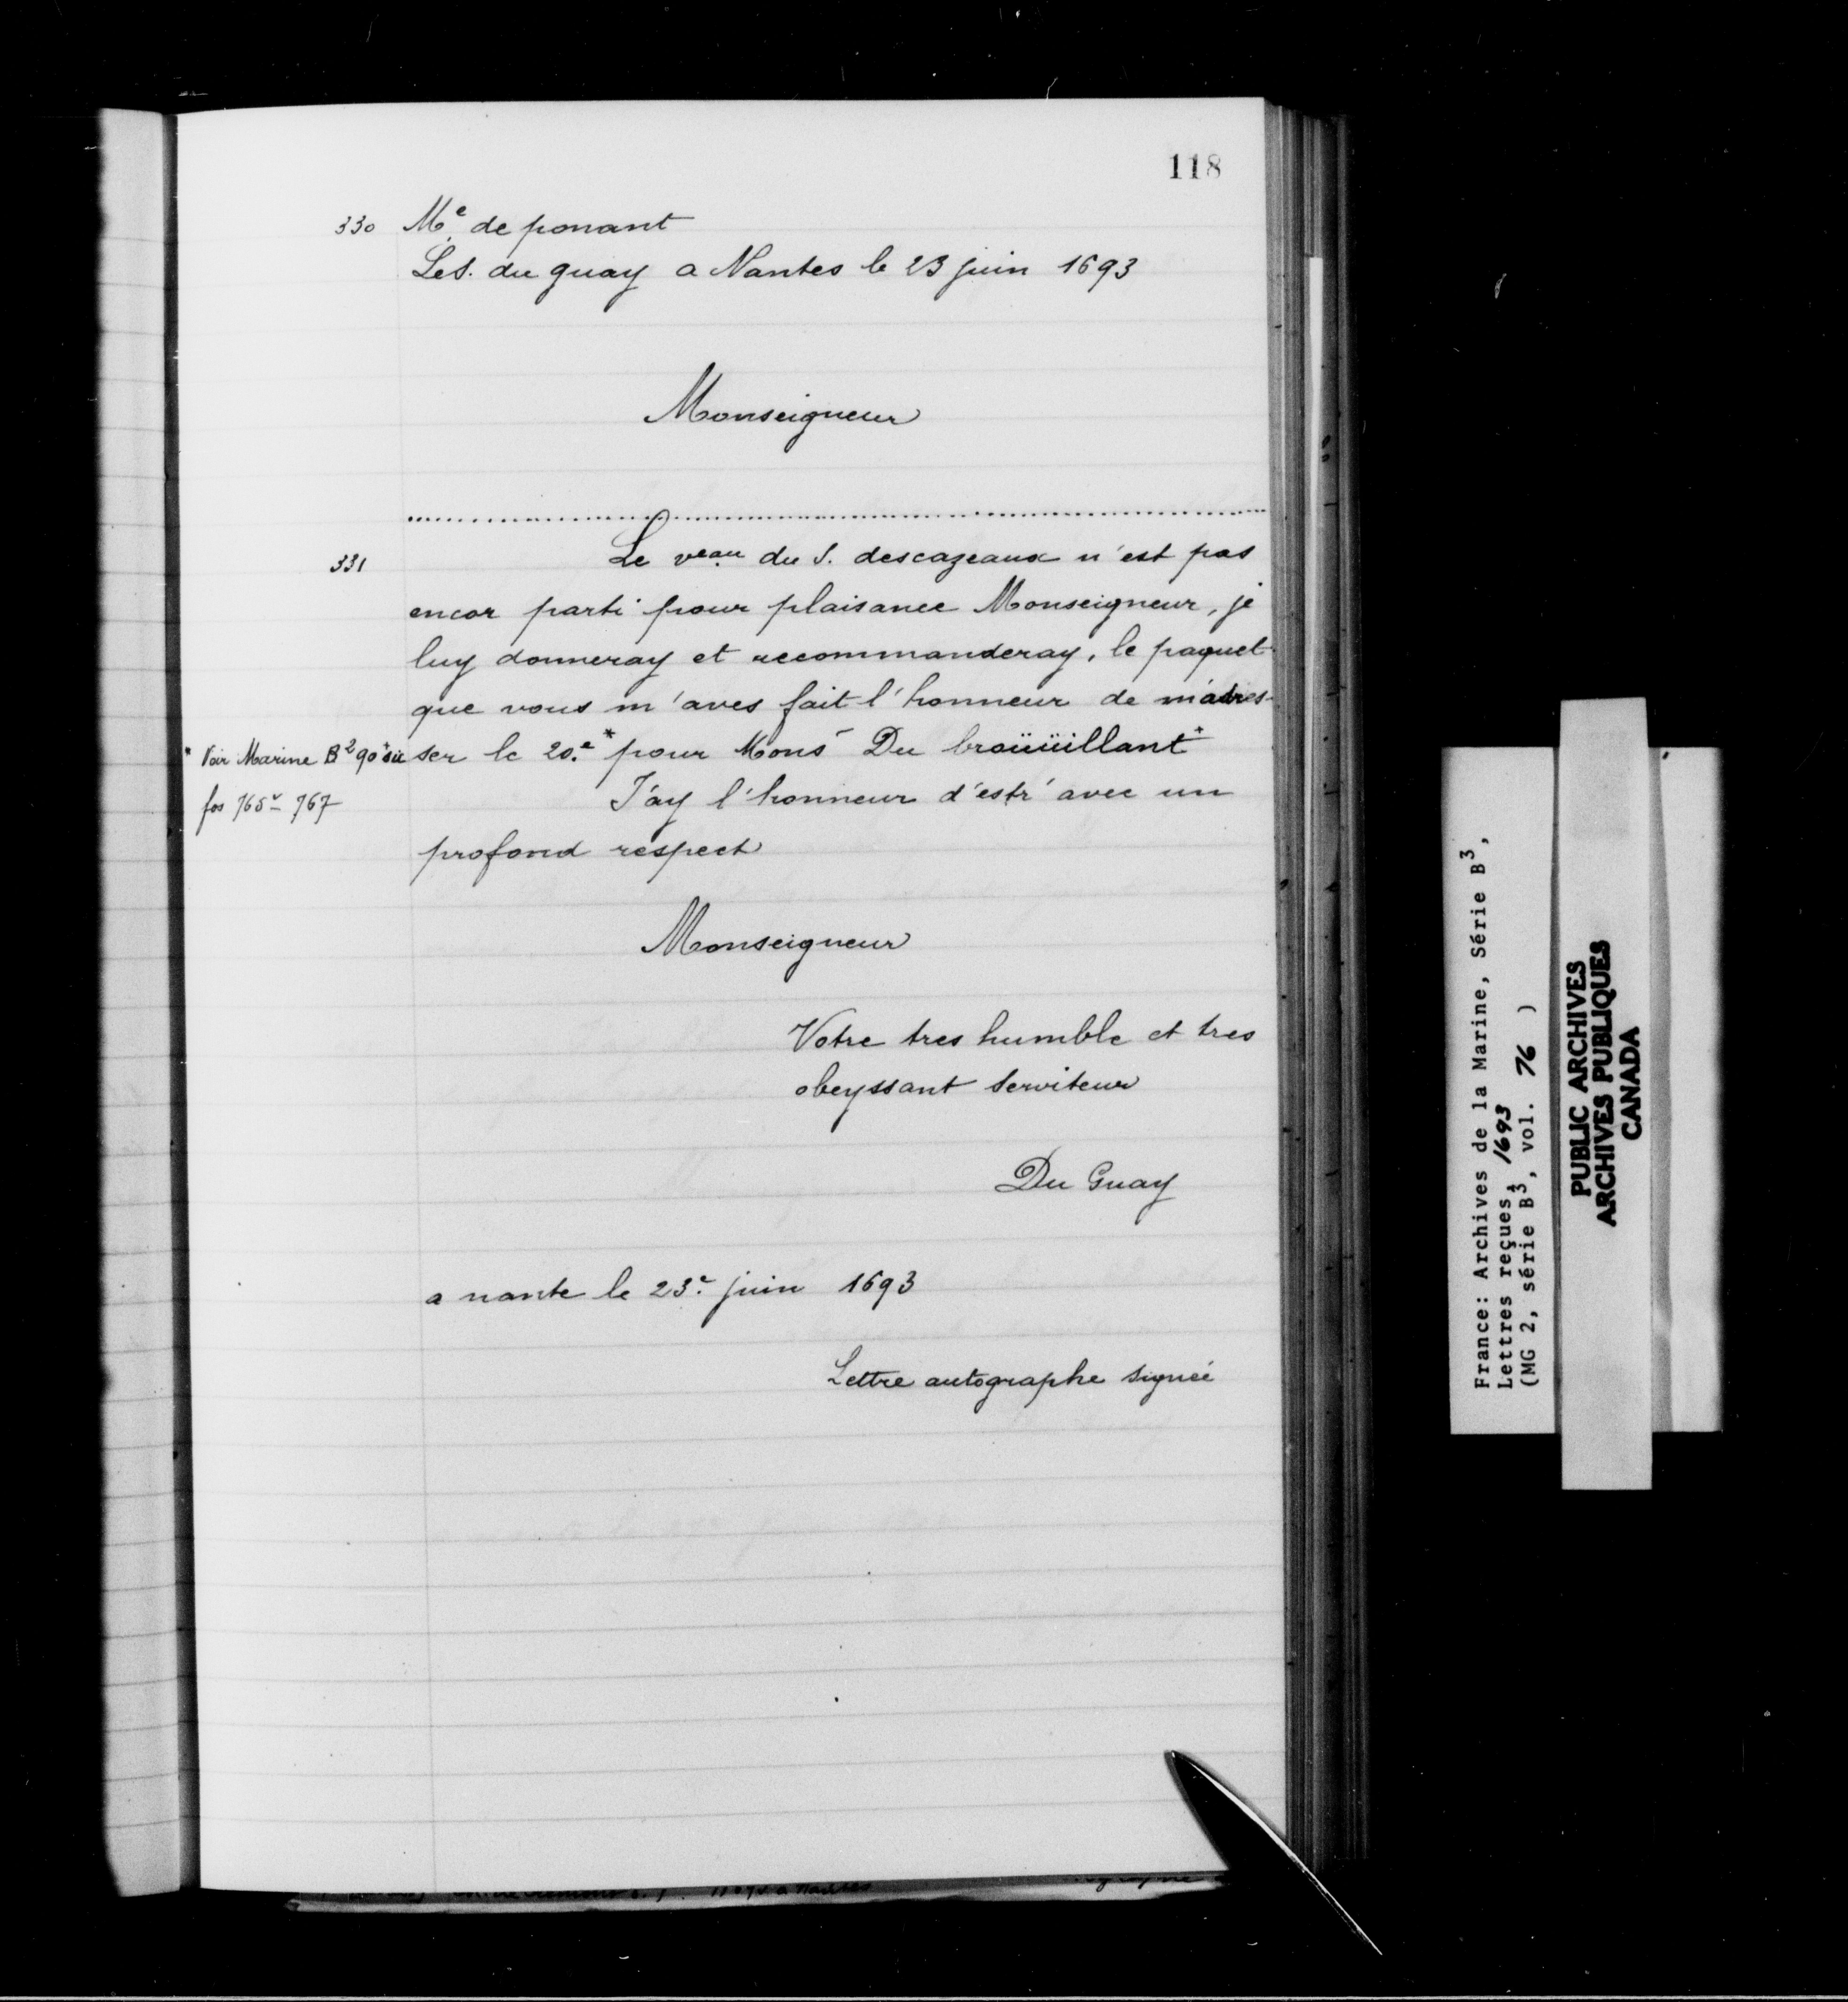 118
330 Me. de ponant
Le S. du guay a Nantes le 23 juin 1693
Monseigneur
331 Le veau. du S. descazeaux n'est pas
encor parti pour plaisance Monseigneur, je
luy donneray et recommanderay, le paquet
que vous m'aves fait l'honneur de m'adres-
ser le 20.e * pour Mons Du broüüillant *
* Voir Marine B2 90
fos 765v - 767
J'ay l'honneur d'estr' avec un
profond respect
Monseigneur
Votre tres humble et tres
obeyssant serviteur
Du Guay
a nante le 23e. juin 1693
Lettre autographe signée
France: Archives de la Marine, Série B3,
Lettres reçues, 1693
(MG 2, série B3, vol. 76 )
PUBLIC ARCHIVES
ARCHIVES PUBLIQUES
CANADA